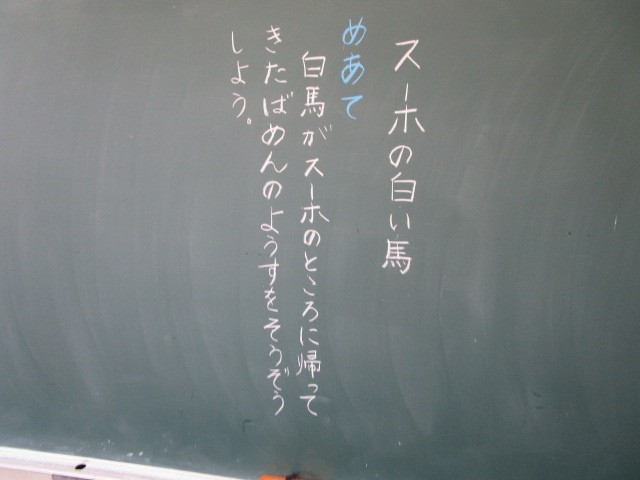 スーホの白い馬
めあて
白馬がスーホのところに帰って
きたばめんのようすをそうぞう
しよう。